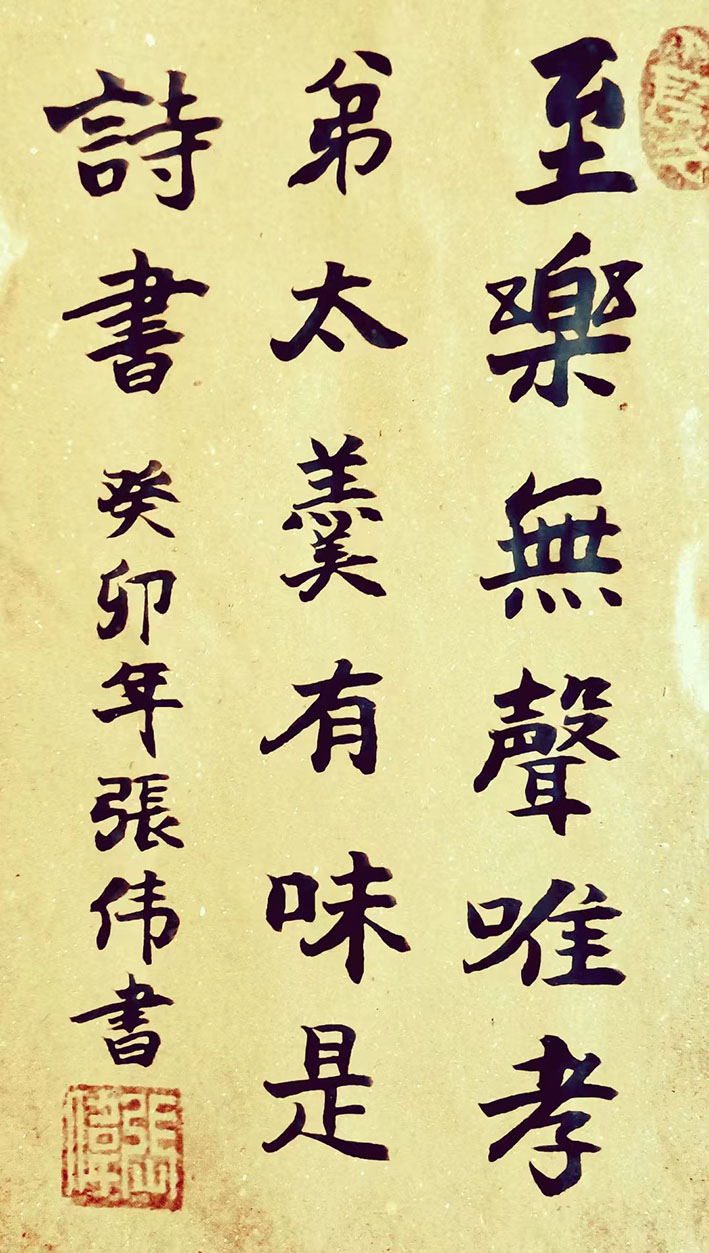 至樂無聲唯孝
弟太羹有味是
詩書
癸卯年張伟書